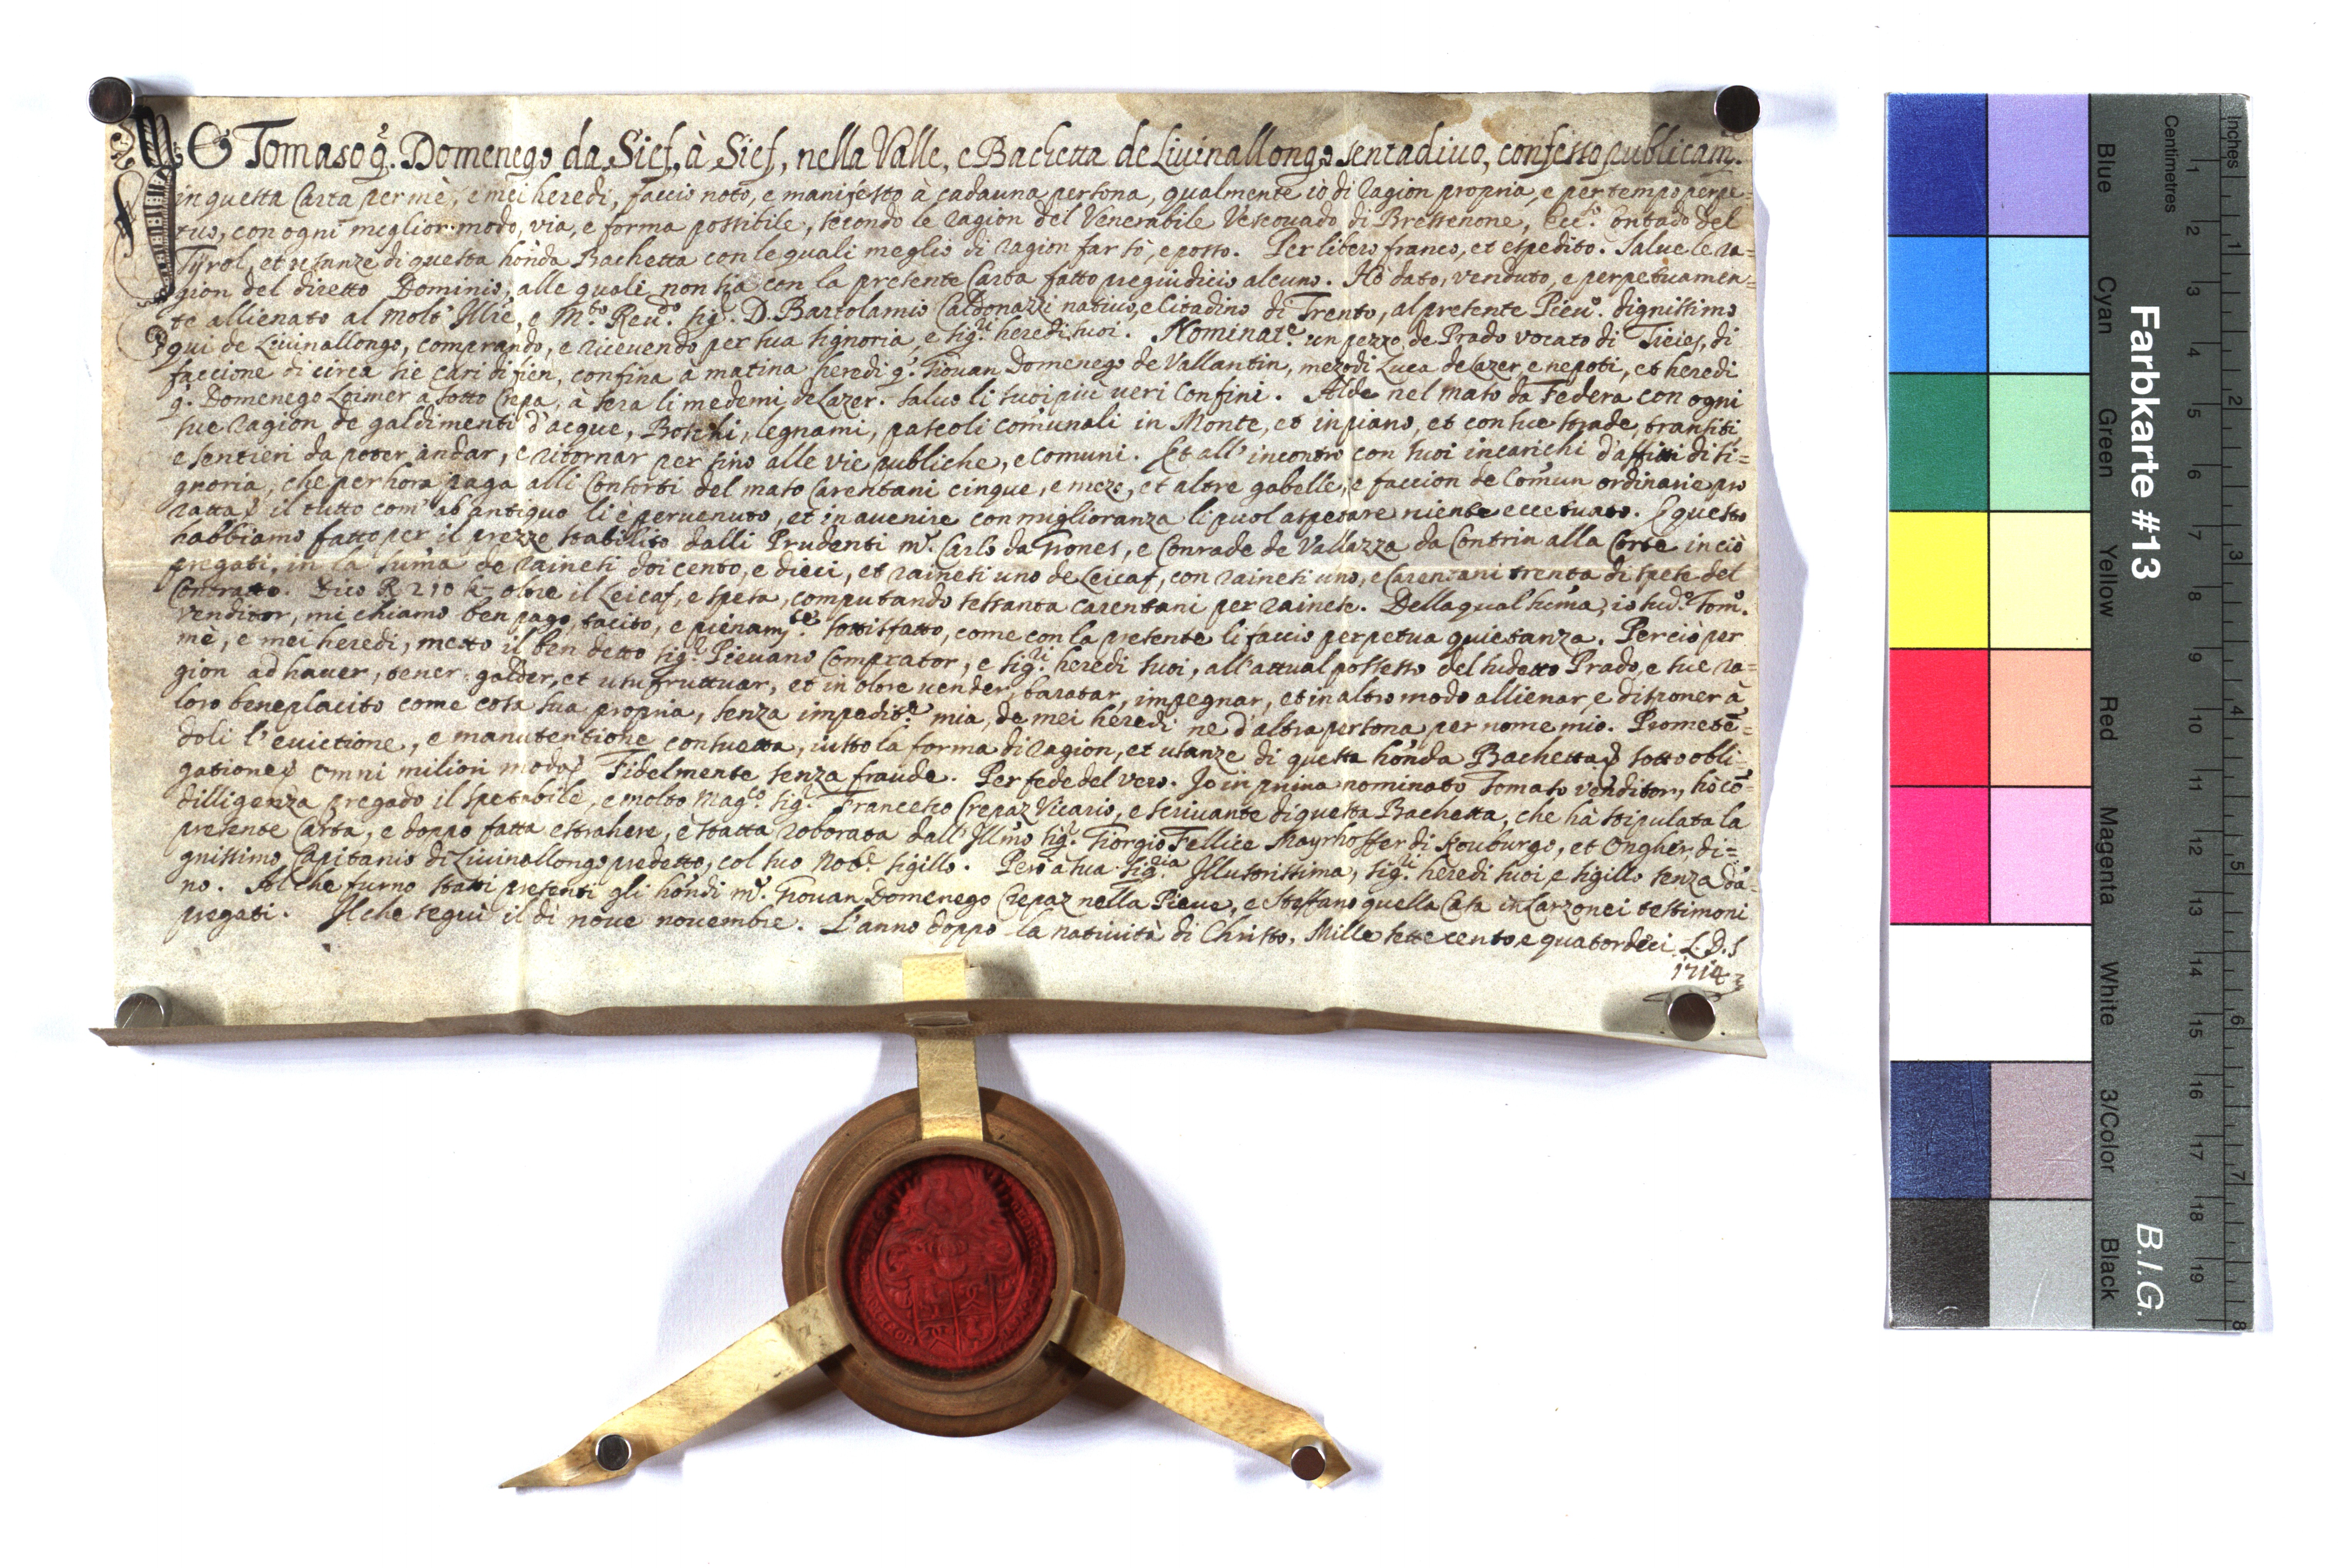 IO Tomaso q. Domenego da Sief, à Sief, nella Valle, e Bachetta de Livinallongo sentadivo, confesso publicam.
in questa Carta per mè, e mei heredi, faccio noto, e manifesto à cadauna persona, qualmente io di ragion propria, e per tempo perpe=
tuo, con ogni meglior modo, via, e forma possibile, secondo le ragion del Venerabile Vescovado di Bressenone, Contado del
Tÿrol, et usanze di questa honda Bachetta con le quali meglio di ragion far sò, e posso. Per libero franco, et espedito. Salve le ra=
gion del diretto Dominio, alle quali non sia con la presente Carta fatto pregiudicio alcuno. Hò dato, venduto, e perpetuamen=
te allienato al molt' Illre, e Mto. Revdo. sigr. D. Bartolamio Caldonazzi nativo, e Citadino di Trento, al presente Pievo. dignissimo
qui de Livinallongo, comprando, e ricevendo per sua signoria, e sigri. heredi suoi. Nominate. un pezzo de Prado vocato di Ticies, di
faccione di circa sie cari di fien, confina a matina heredi q. Giovan Domenego de Vallantin, mezodi Luca de Lazer, e nepoti, et heredi
q. Domenego Loimer a sotto Crepa, à sera li medemi de Lazer. salvo li suoi più veri confini. Alde nel maso da Federa con ogni
sue ragion de galdimenti d'acque, Boschi, legnami, pascoli comunali in Monte, et in piano, et con sue strade, transiti
e sentieri da poter andar, e ritornar per fino alle vie publiche, e comuni. Et all' incontro con suoi incarichi d'affitti di si=
gnoria, che per hora paga alli Consorti del maso Carentani cinque, e mezo, et altre gabelle, e faccion de Comun ordinarie pro
ratta il tutto com' ab antiquo li è pervenuto, et in avenire con miglioranza li puol aspetare niente eccetuato. E questo
habbiamo fatto per il prezzo stabilito dalli Prudenti mr. Carlo da Grones, e Conrade de Vallazza da Contrin alla Corte in ciò
pregati, in la suma de rainesi doi cento, e dieci, et rainesi uno de Leicaf, con rainesi uno, e Carentani trenta di spese del
Contratto. Dico R 210 k- oltre il Leicaf, e spesa, computando sessanta carentani per rainese. Della qual suma, io sudo. Tomo.
venditor, mi chiamo ben pago, tacito, e pienamte. sottisfatto, come con la presente li faccio perpetua quietanza. Perciò per
mè, e mei heredi, metto il ben detto sigr. Pievano Comprator, e sigri. heredi suoi, all' attual possesso del sudetto Prado, e sue ra=
gion ad haver, tener, galder, et usufruttuar, et in oltre vender, baratar, impegnar, et in altro modo allienar, e disponer à
loro beneplacito come cosa sua propria, senza impedite. mia, de mei heredi ne d'altra persona per nome mio. Prometē=
doli l'evictione, e manutentione consuetta, iusto la forma di ragion, et usanze di questa honda Bachetta sotto obli=
gatione omni miliori modo Fidelmente senza fraude. Per fede del vero. Io in prima nominato Tomaso venditor, hò cō=
dilligenza pregado il spetabile, e molto Magco. sigr. Francesco Crepaz Vicario, e scrivante di questa Bachetta, che hà stipulata la
presente Carta, e doppo fatta estrahere, e statta roborata dall' Illmo sigr. Giorgio Fellice Mayrhoffer di Kouburgo, et Ongher, di=
gnissimo Capitanio di Livinallongo predetto, col suo Nobe. sigillo. Però à sua sigria. Illustrissima, sigri. heredi suoi, e sigillo senza dā=
no. Al che furno statti presenti gli hondi mr. Giovan Domenego Crepaz nella Pieve, e Steffano quella Casa in Larzonei testimoni
pregati. Il che seguì il dì nove novembre. L'anno doppo la natività di Christo, Mille sette cento, e quatordeci. L.D.S
1714
Farbkarte #13
B.I.G.
Centimetres
Inches
Blue
Cyan
Green
Yellow
Red
Magenta
White
3/Color
Black
1 2 3 4 5 6 7 8 9 10 11 12 13 14 15 16 17 18 19
1 2 3 4 5 6 7 8